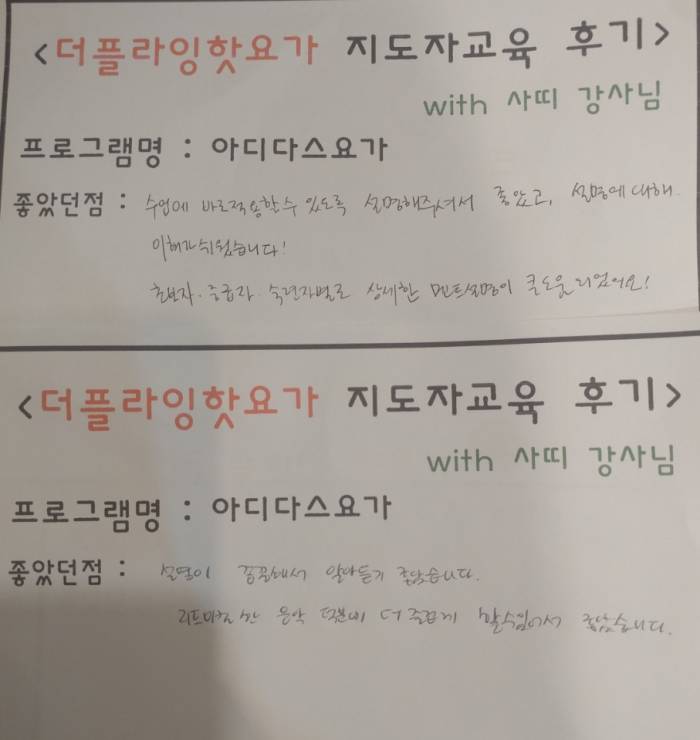 <더플라잉핫요가 지도자교육 후기>
with 사띠 강사님
프로그램명 : 아디다스요가
좋았던점 : 수업에 바로적용할수 있도록 설명해주셔서 좋았고, 설명에 대해
이해가 쉬웠습니다!
초보자·중급자·숙련자별로 상세한 멘트설명이 큰도움되었어요!
<더플라잉핫요가 지도자교육 후기>
with 사띠 강사님
프로그램명 : 아디다스요가
좋았던점 : 설명이 꼼꼼해서 알아듣기 좋았습니다.
리드미컬한 음악 덕분에 더 즐겁게 할수있어서 좋았습니다.